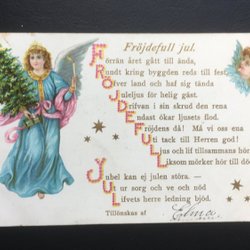 Fröjdefull jul.
Förrän året gått till ända,
Rundt kring bygden reds till fest
Öfver land och haf sig tända
Juleljus för helig gäst.
Drifvan i sin skrud den rena
Endast ökar ljusets flod.
Fröjdens då! Må vi oss ena
Uti tack till Herren god!
Ljus och lif tillsammans hör
Liksom mörker hör till dö
Jubel kan ej julen störa. —
Ur sorg och ve och nöd
Lifvets herre ledning bjöd.
Tillönskas af